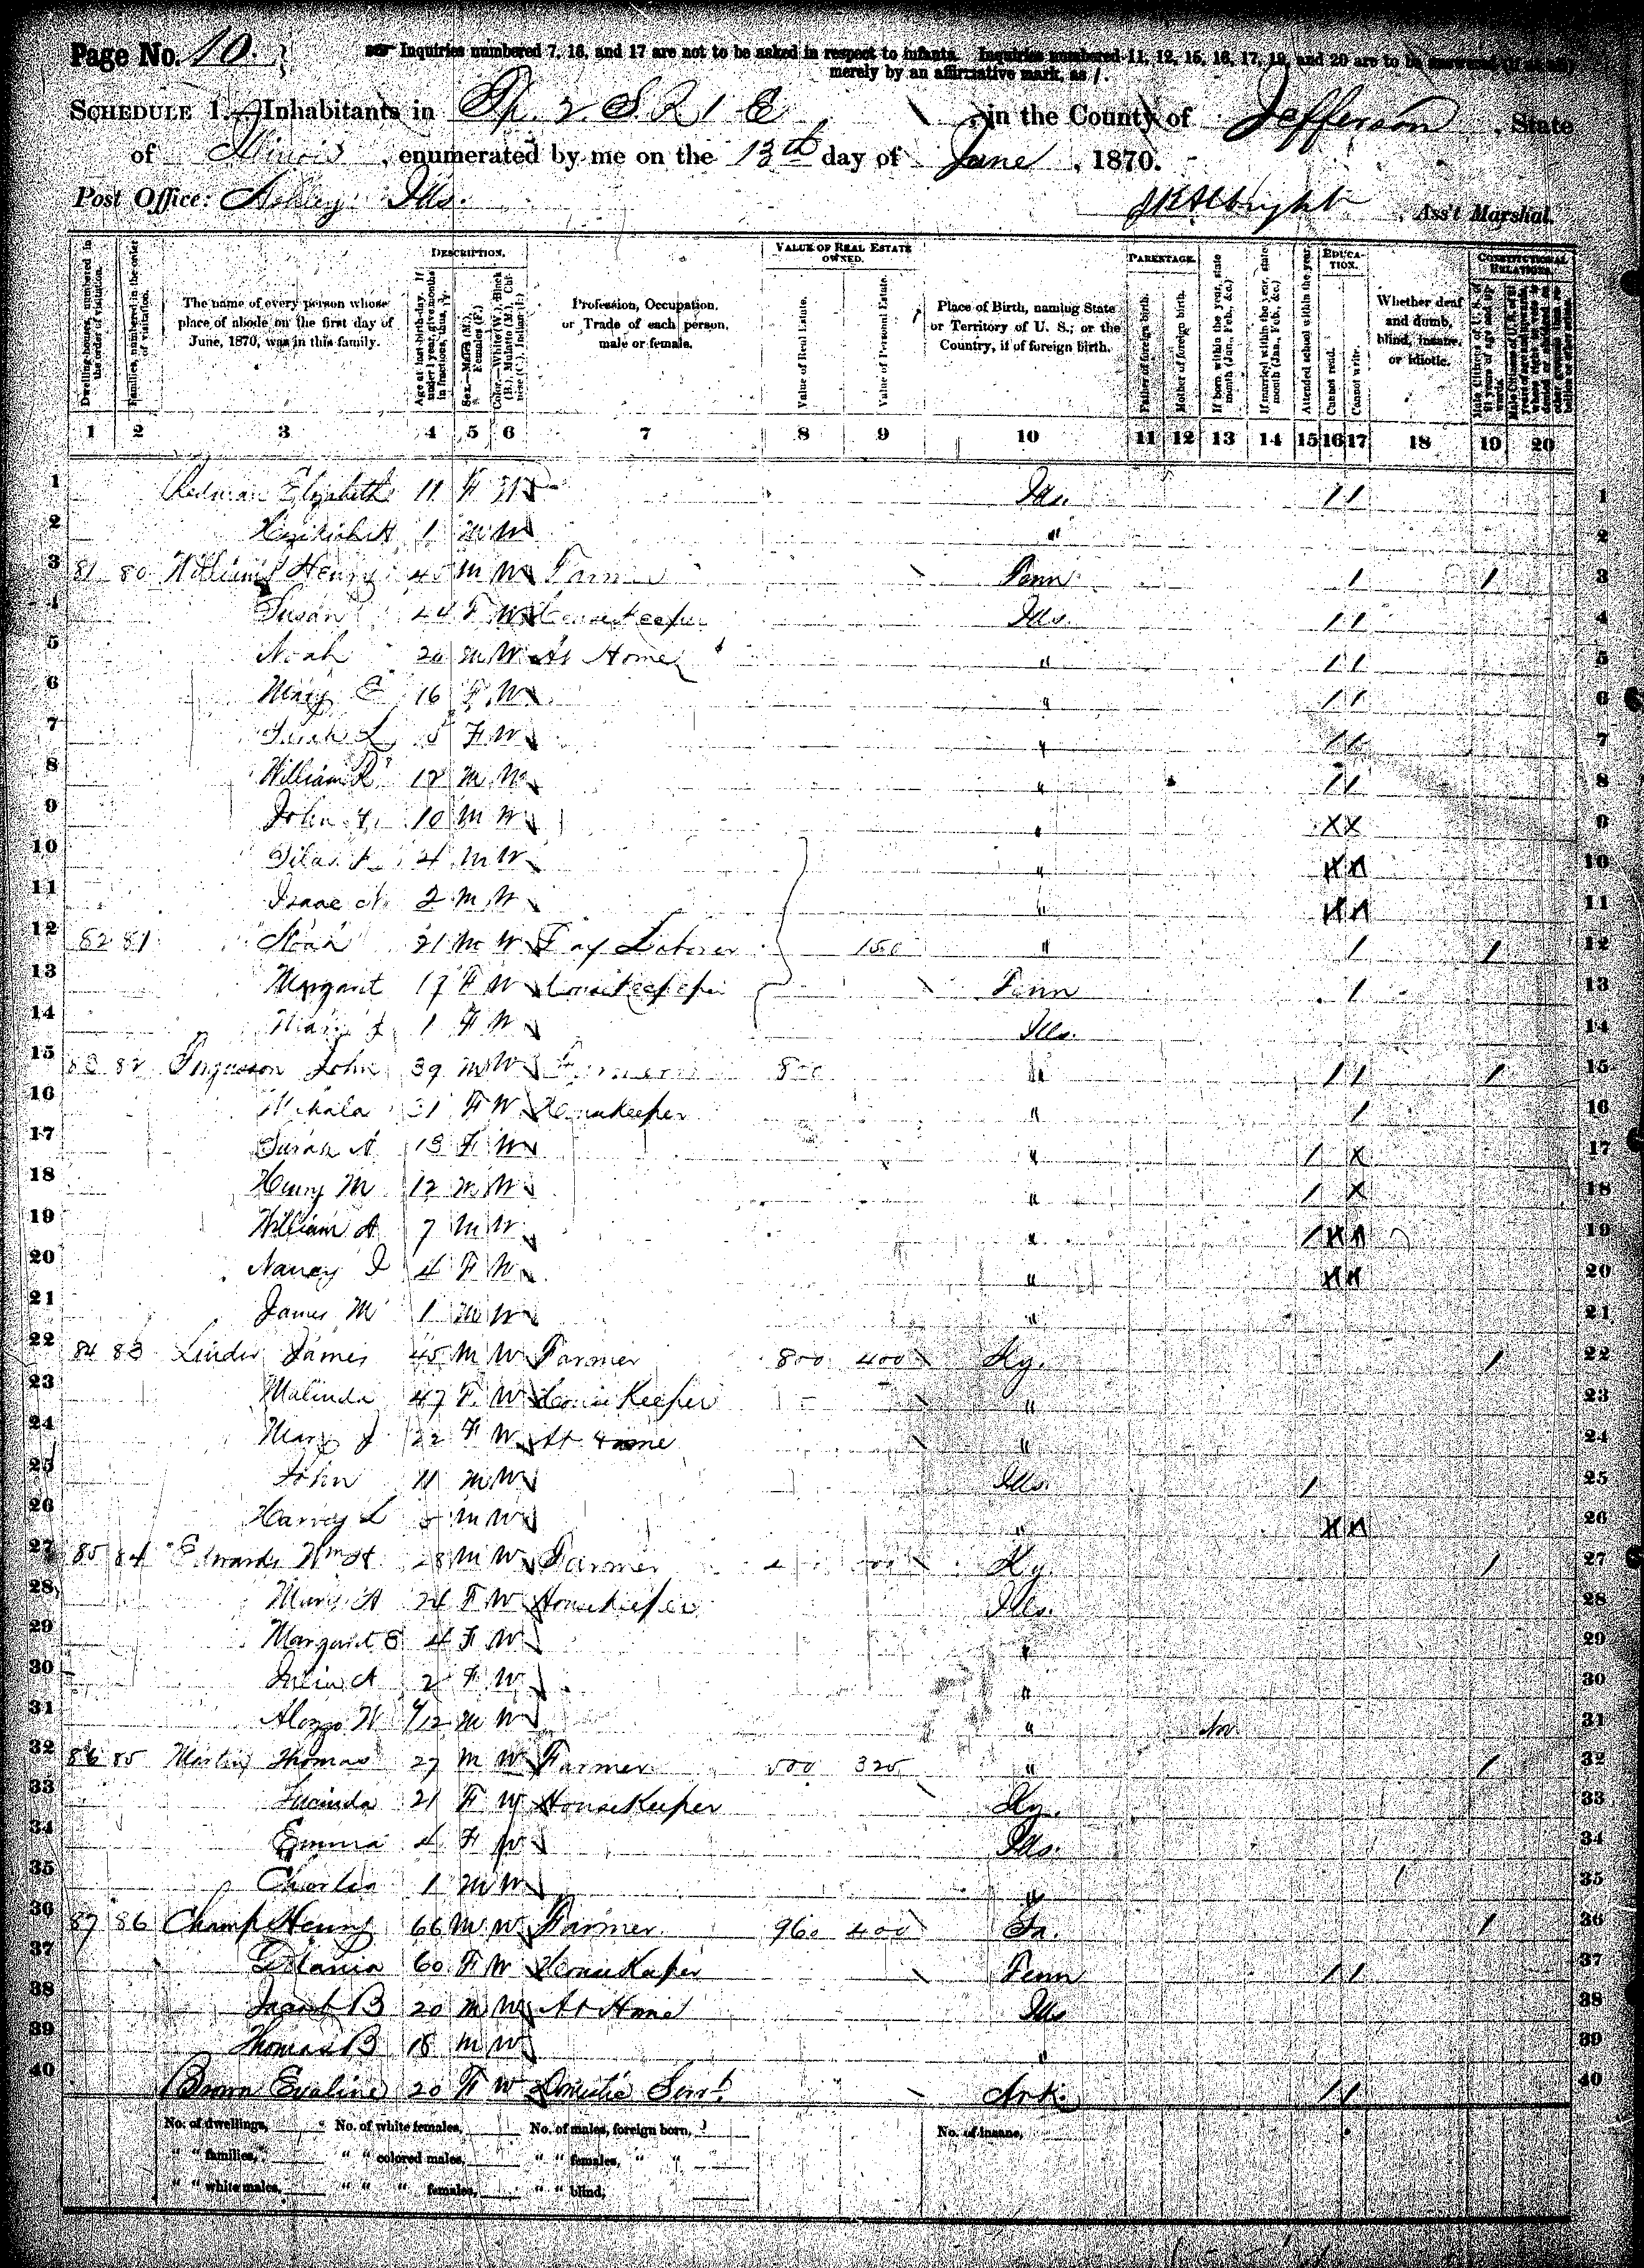 Page No. 10.
Inquiries numbered 7, 16, and 17 are not to be asked in respect to infants. Inquiries numbered 11, 12, 15, 16, 17, 19, and 20 are to be
merely by an affirmative mark, as /.
SCHEDULE 1.—Inhabitants in Tp. 2 S. R 1 E , in the County of Jefferson , State
of Illinois , enumerated by me on the 13th day of June , 1870.
Post Office: Ashley Ills. , Ass't Marshal.
Dwelling-houses, numbered in the order of visitation.
Families, numbered in the order of visitation.
The name of every person whose place of abode on the first day of June, 1870, was in this family.
DESCRIPTION.
Age at last birth-day. If under 1 year, give months in fractions, thus,
Sex.—Males (M.), Females (F.)
Color.—White (W.), Black (B.), Mulatto (M.), Chinese (C.), Indian (I.)
Profession, Occupation, or Trade of each person, male or female.
VALUE OF REAL ESTATE OWNED.
Value of Real Estate.
Value of Personal Estate.
Place of Birth, naming State or Territory of U. S.; or the Country, if of foreign birth.
PARENTAGE.
Father of foreign birth.
Mother of foreign birth.
If born within the year, state month (Jan., Feb., &c.)
If married within the year, state month (Jan., Feb., &c.)
Attended school within the year.
EDUCATION.
Cannot read.
Cannot write.
Whether deaf and dumb, blind, insane, or idiotic.
CONSTITUTIONAL RELATIONS.
Male Citizens of U. S. of 21 years of age and upwards.
1 2 3 4 5 6 7 8 9 10 11 12 13 14 15 16 17 18 19 20
1 Elizabeth 11 F W Ills. / / 1
2 1 M W " 2
3 81 80 Williams Henry 45 M W Farmer Penn / / 3
4 Susan 44 F W Housekeeper Ills. / / 4
5 Noah 20 M W At Home " / / 5
6 Mary E 16 F W " / / 6
7 Sarah L F W " / / 7
8 William R 12 M W " / / 8
9 John 10 M W " X X 9
10 Silas 4 M W " 10
11 Isaac N 2 M W " 11
12 82 81 " Noah 21 M W Day Laborer 150 " / / 12
13 Margaret 17 F W Housekeeper Penn / 13
14 Mary J 1 F W Ills. 14
15 83 82 Fergusson John 39 M W Farmer 800 " / / / 15
16 31 F W Housekeeper " / 16
17 Sarah A 13 F W " / X 17
18 Henry M 12 M W " / X 18
19 William A 7 M W " / 19
20 Nancy J 4 F W " 20
21 James M 1 M W " 21
22 84 83 Linder James 45 M W Farmer 800 400 Ky. / 22
23 Malinda 47 F W House Keeper " 23
24 Mary J 22 F W At Home " 24
25 John 11 M W Ills. / 25
26 Harvey L 5 M W " 26
27 85 84 Edwards Wm H 28 M W Farmer Ky. / 27
28 Mary A 24 F W Housekeeper Ills. 28
29 Margaret E 4 F W " 29
30 Julia A 2 F W " 30
31 Alonzo W M W " 31
32 86 85 Martin Thomas 27 M W Farmer 500 325 " / 32
33 Lucinda 21 F W Housekeeper Ky. 33
34 Emma 4 F W Ills. 34
35 Charles 1 M W " 35
36 87 86 Champ Henry 66 M W Farmer 960 400 / 36
37 60 F W House Keeper Penn / / 37
38 Jacob B 20 M W At Home Ills 38
39 Thomas B 18 M W " 39
40 Brown Evaline 20 F W Domestic Servt. Ark. / / 40
No. of dwellings, No. of white females, No. of males, foreign born, No. of insane,
" " families, " " colored males, " " females, " "
" " white males, " " " females, " " blind,